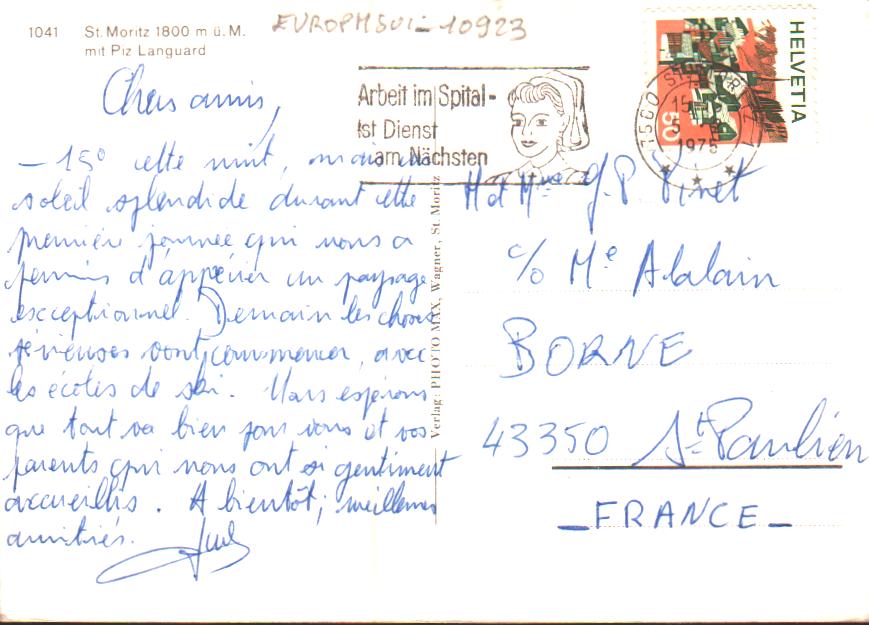 EUROPMSUI-10923
1041 St. Moritz 1800 m ü. M.
mit Piz Languard
Arbeit im Spital-
ist Dienst
am Nächsten
HELVETIA
50
7500 ST. MORITZ 1
1975
Verlag: PHOTO MAX, Wagner, St. Moritz
Chers amis,
- 15° cette nuit, mais un
soleil splendide durant cette
première journée qui nous a
permis d'apprécier un paysage
exceptionnel. Demain les choses
sérieuses vont commencer, avec
les écoles de ski. Nous espérons
que tout va bien pour vous et vos
parents qui nous ont si gentiment
accueillis. A bientôt, meilleures
amitiés.
M et Mme J.P. Vinet
c/o Me Alalain
BORNE
43350 St Paulien
- FRANCE -